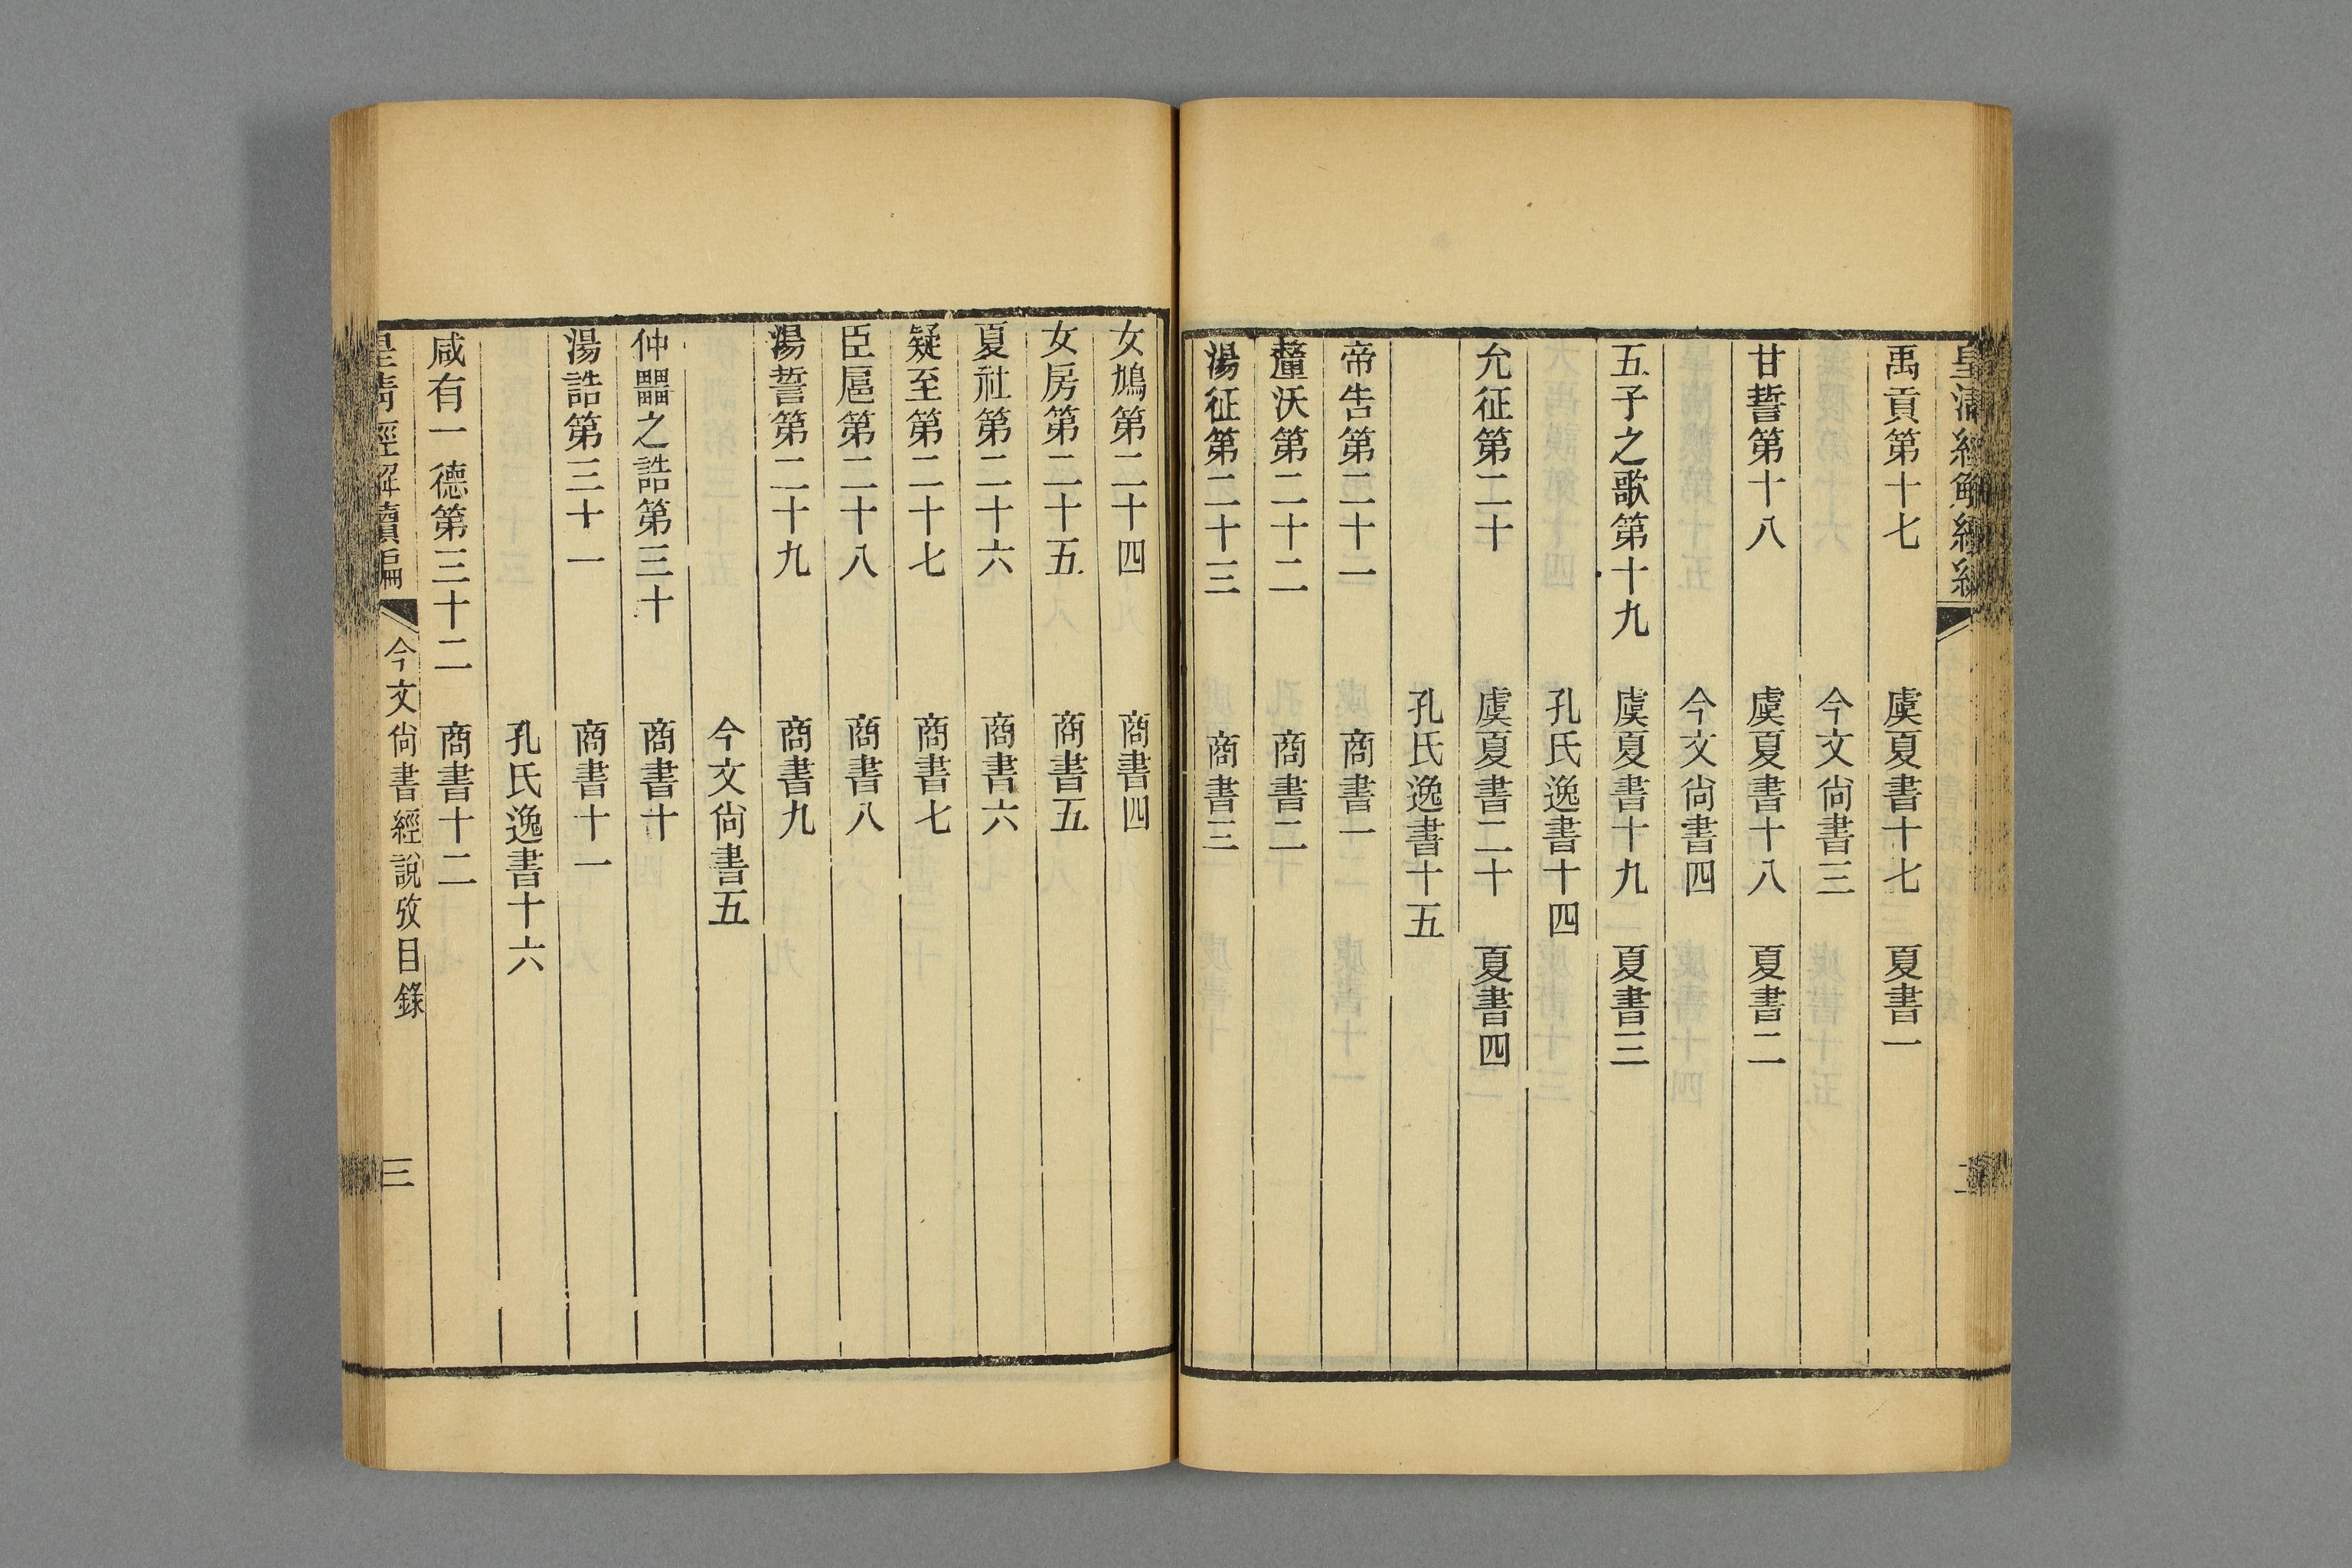 皇淸經解續編
禹貢第十七 虞夏書十七 夏書一
今文尙書三
甘誓第十八 虞夏書十八 夏書二
今文尙書四
五子之歌第十九 虞夏書十九 夏書三
孔氏逸書十四
允征第二十 虞夏書二十 夏書四
孔氏逸書十五
帝告第二十一 商書一
釐沃第二十二 商書二
湯征第二十三 商書三
女鳩第二十四 商書四
女房第二十五 商書五
夏社第二十六 商書六
疑至第二十七 商書七
臣扈第二十八 商書八
湯誓第二十九 商書九
今文尙書五
仲畾之誥第三十 商書十
湯誥第三十一 商書十一
孔氏逸書十六
咸有一德第三十二 商書十二
皇淸經解續編 今文尙書經說攷目錄 三